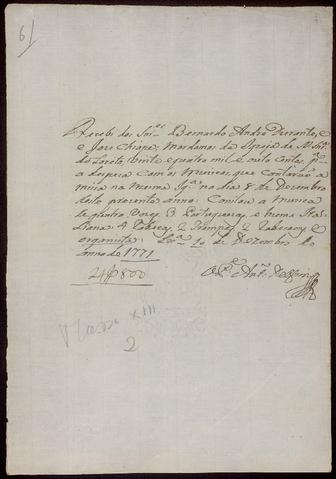 6/
Recebi dos Snr.es Bernardo Andre Durante, e
e Jose Chiape, Mordomos da Igreja de N. Snr.a
do Loreto, vinte e quatro mil e oito centos, p.a
a despeza com os Muzicos, que Cantarão a
missa na mesma Igr.a no dia 8 de Dezembro
deste presente anno: Constou a Muzica
de quatro Vozes, 3 Portuguezas, e huma Ita-
liana: 4 2 Trompas, 2 e
organista: Lx.a 10 de Dezembro do
anno de 1771
24$800
O P.e Ant.o
Masso XIII
2